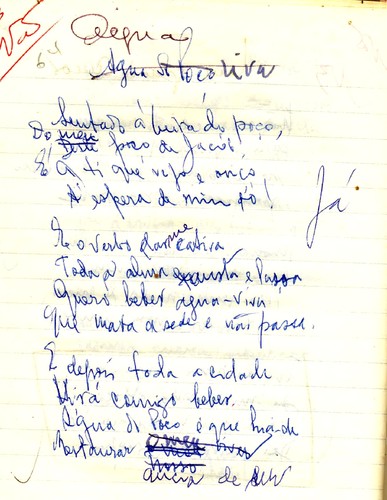 Água
64
Água do Poço viva
Sentado à beira do poço,
Do meu poço de Jacob!
É a ti que vejo e ouço
À espera de mim só!
Já
E o verbo que me cativa
Toda a alma
Quero beber água-viva
Que mata a sede e não passa.
E depois toda a cidade
Virá comigo beber.
Água do Poço é que há-de
Restaurar
nosso
de